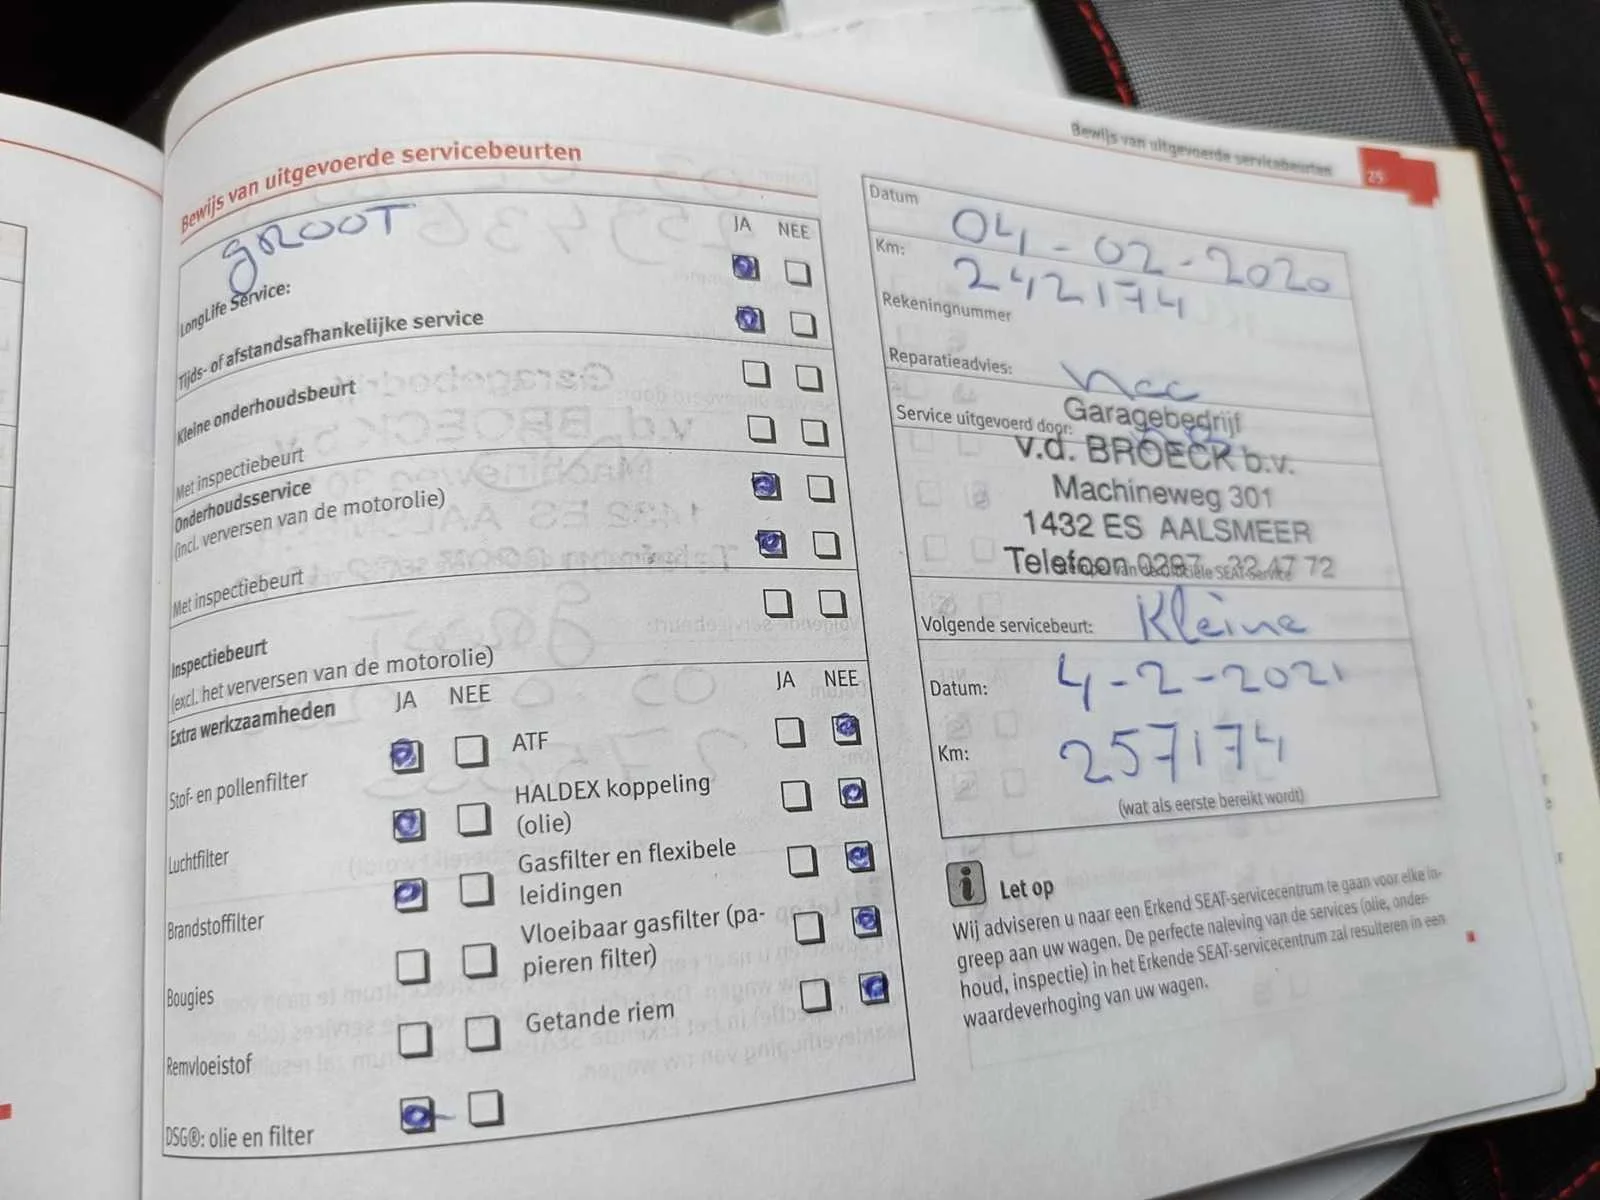 Bewijs van uitgevoerde servicebeurten
25
Bewijs van uitgevoerde servicebeurten
gROOT
JA NEE
LongLife Service:
Tijds- of afstandsafhankelijke service
Kleine onderhoudsbeurt
Met inspectiebeurt
Onderhoudsservice
(incl. verversen van de motorolie)
Met inspectiebeurt
Inspectiebeurt
(excl. het verversen van de motorolie)
Extra werkzaamheden
JA NEE
Stof- en pollenfilter
Luchtfilter
Brandstoffilter
Bougies
Remvloeistof
DSG®: olie en filter
JA NEE
ATF
HALDEX koppeling
(olie)
Gasfilter en flexibele
leidingen
Vloeibaar gasfilter (pa-
pieren filter)
Getande riem
Datum 04-02-2020
Km: 242174
Rekeningnummer
Reparatieadvies:
Service uitgevoerd door:
Garagebedrijf
v.d. BROECK b.v.
Machineweg 301
1432 ES AALSMEER
Telefoon 0297 - 32 47 72
Volgende servicebeurt: Kleine
Datum: 4-2-2021
Km: 257174
(wat als eerste bereikt wordt)
i Let op
Wij adviseren u naar een Erkend SEAT-servicecentrum te gaan voor elke in-
greep aan uw wagen. De perfecte naleving van de services (olie, onder-
houd, inspectie) in het Erkende SEAT-servicecentrum zal resulteren in een
waardeverhoging van uw wagen.